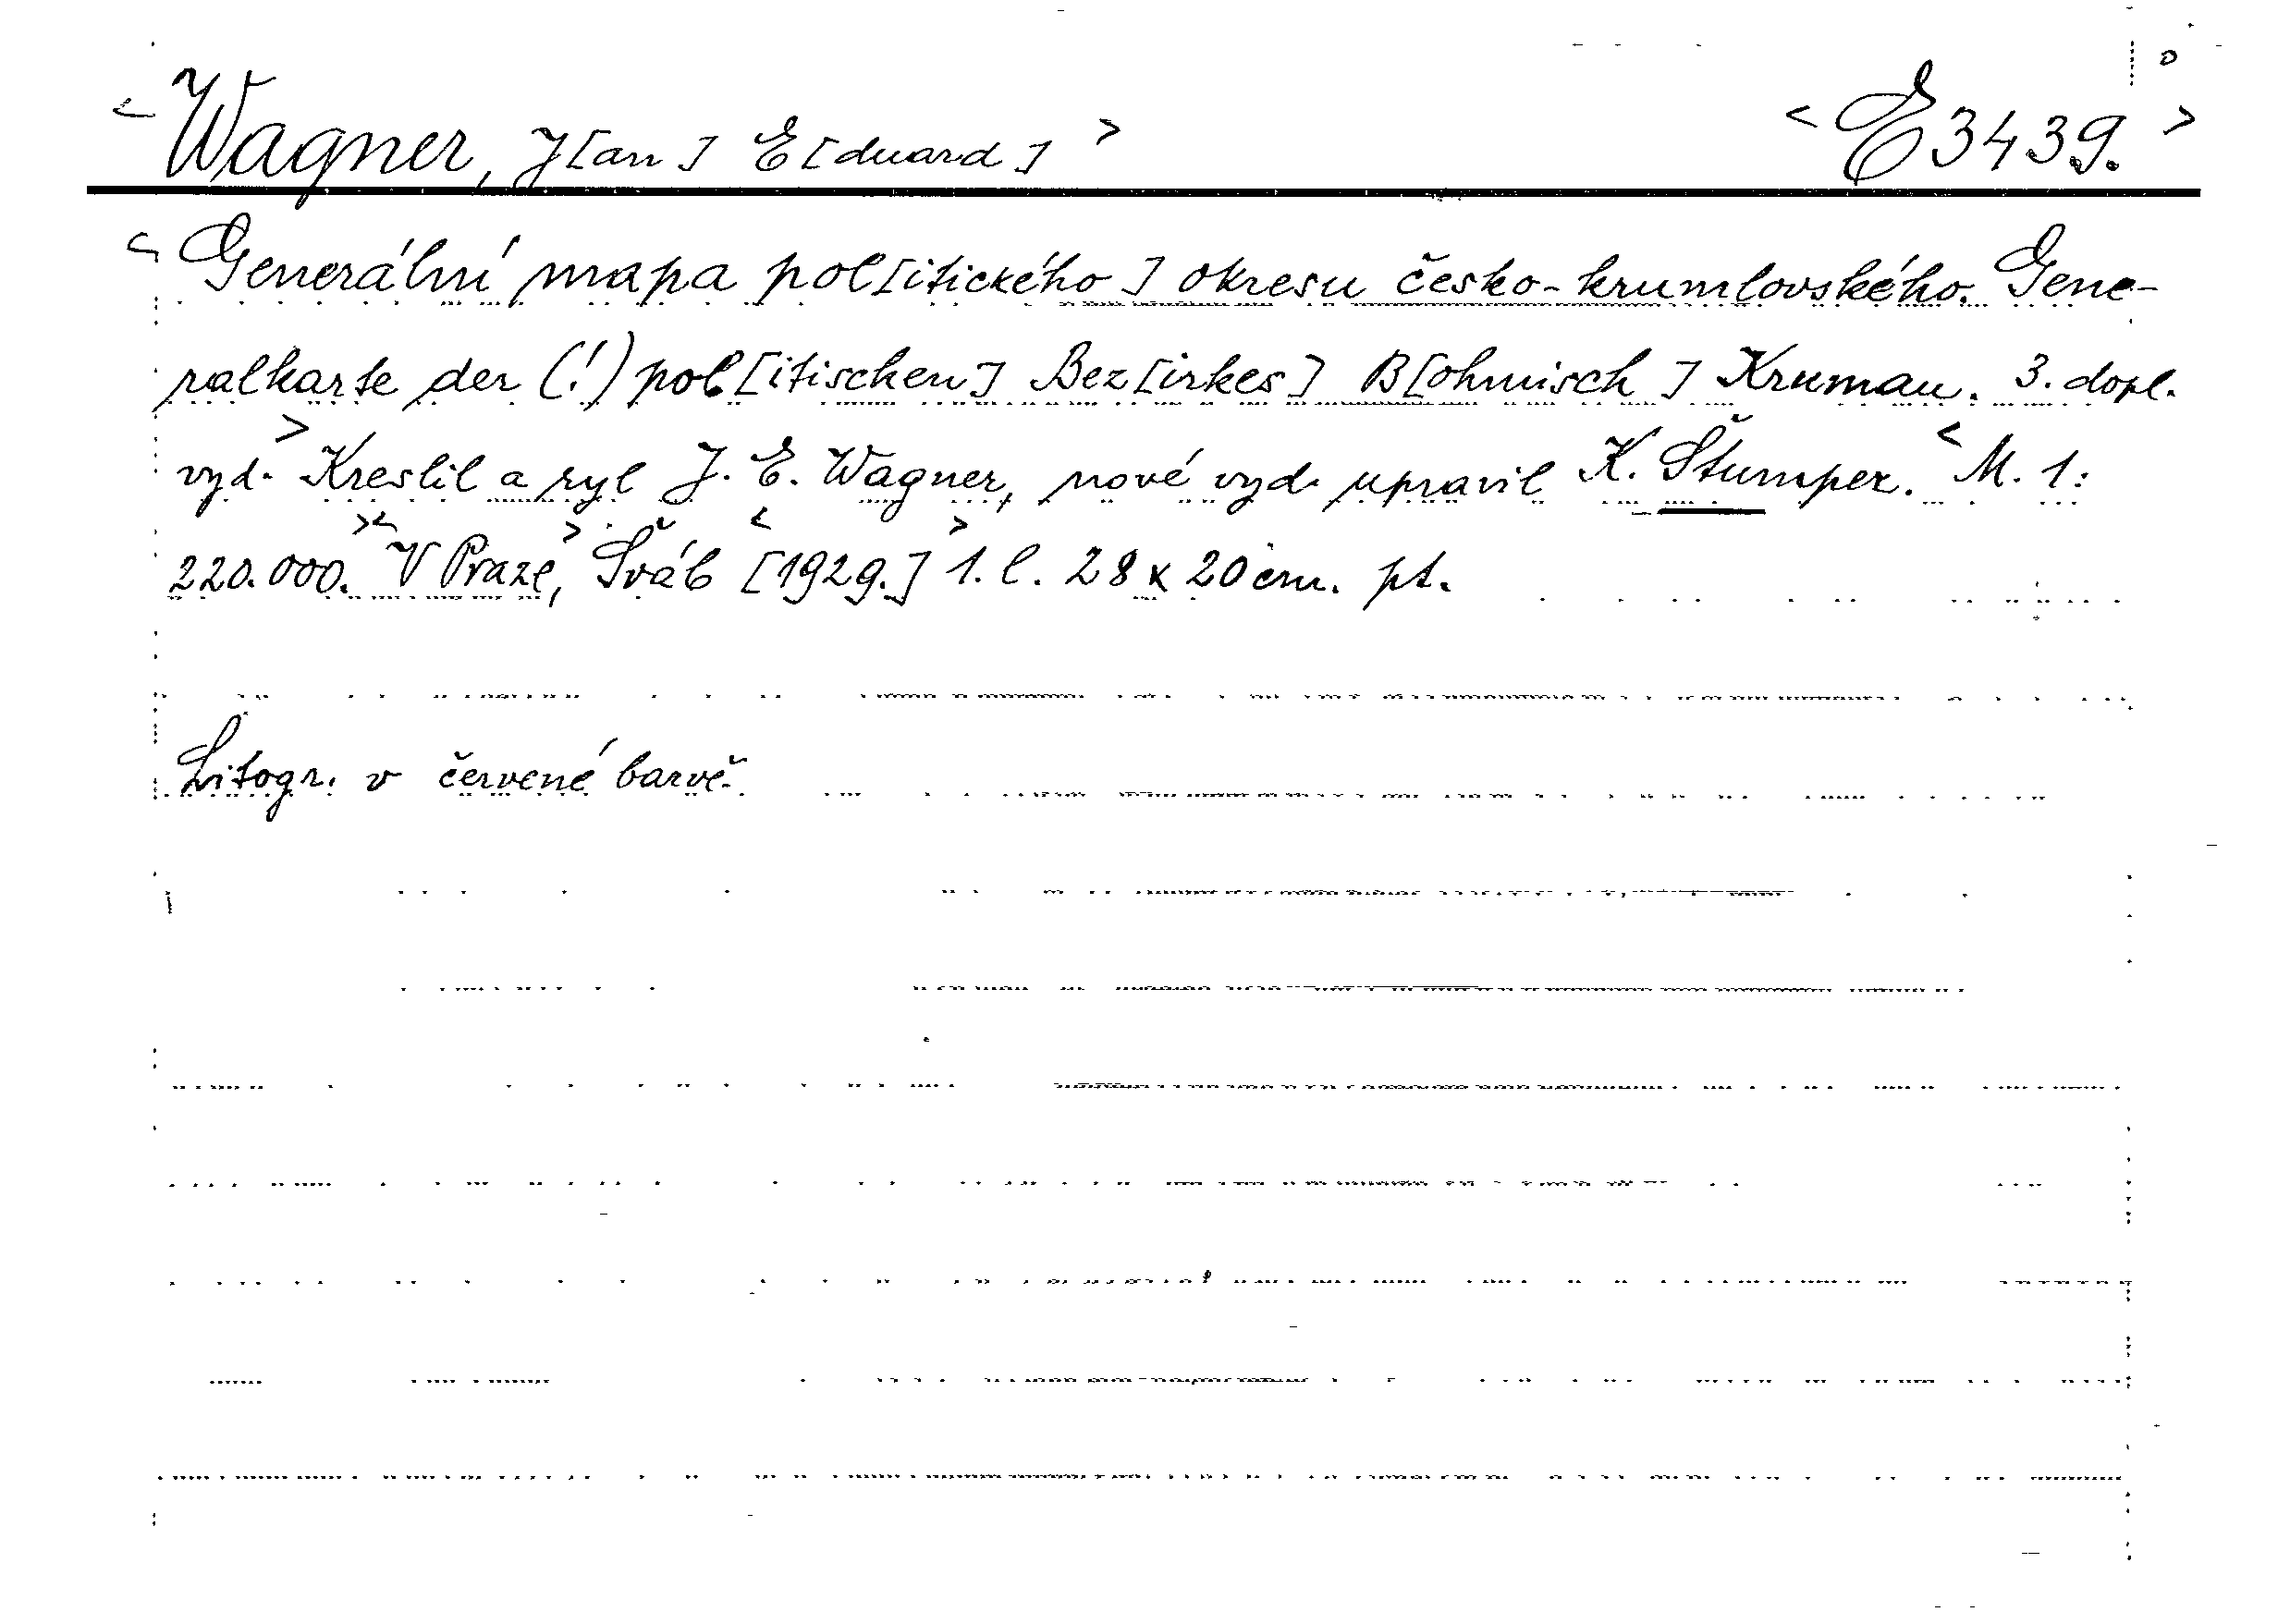 <Wagner, J[an] E[duard]> <E 3439.>
<Generální mapa pol[itického] okresu česko-krumlovského. Gene-
ralkarte der (!) pol[itischen] Bez[irkes] B[ohmisch] Krumau. 3. dopl.
vyd.> Kreslil a ryl J. E. Wagner, nové vyd. upravil K. Štumper. <M. 1:
220.000.> <V Praze,> Šváb <[1929.]> 1. l. 28 x 20 cm. pt.
Litogr. v červené barvě.